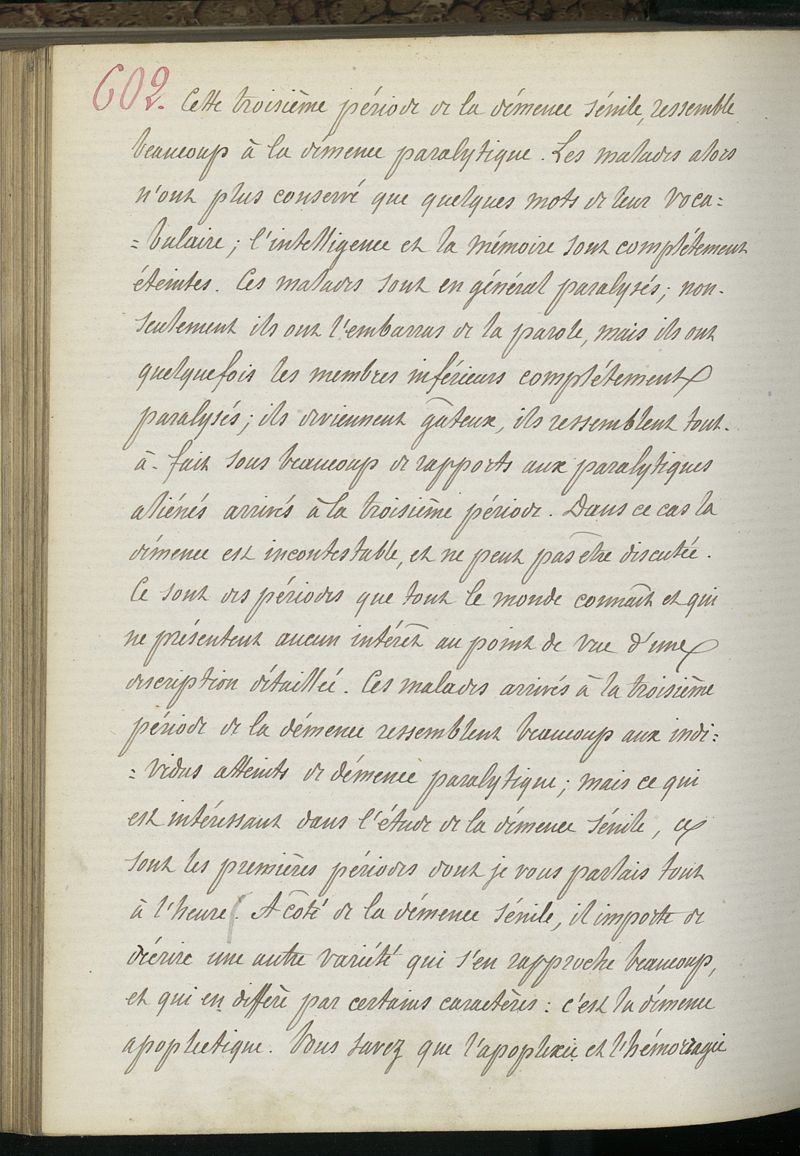 602. Cette troisième période de la démence sénile, ressemble
beaucoup à la démence paralytique. Les malades alors
n'ont plus conservé que quelques mots de leur voca=
=bulaire ; l'intelligence et la mémoire sont complétement
éteintes. Ces malades sont en général paralysés ; non-
seulement ils ont l'embarras de la parole, mais ils ont
quelquefois les membres inférieurs complétement
paralysés ; ils deviennent gâteux, ils ressemblent tout-
à-fait sous beaucoup de rapports aux paralytiques
aliénés arrivés à la troisième période. Dans ce cas la
démence est incontestable, et ne peut pas être discutée.
Ce sont des périodes que tout le monde connaît et qui
ne présentent aucun intérêt au point de vue d'une
description détaillée. Ces malades arrivés à la troisième
période de la démence ressemblent beaucoup aux indi=
=vidus atteints de démence paralytique ; mais ce qui
est intéressant dans l'étude de la démence sénile, ce
sont les premières périodes dont je vous parlais tout
à l'heure. A côté de la démence sénile, il importe de
décrire une autre variété qui s'en rapproche beaucoup,
et qui en diffère par certains caractères : c'est la démence
apoplectique. Vous savez que l'apoplexie et l'hémorragie